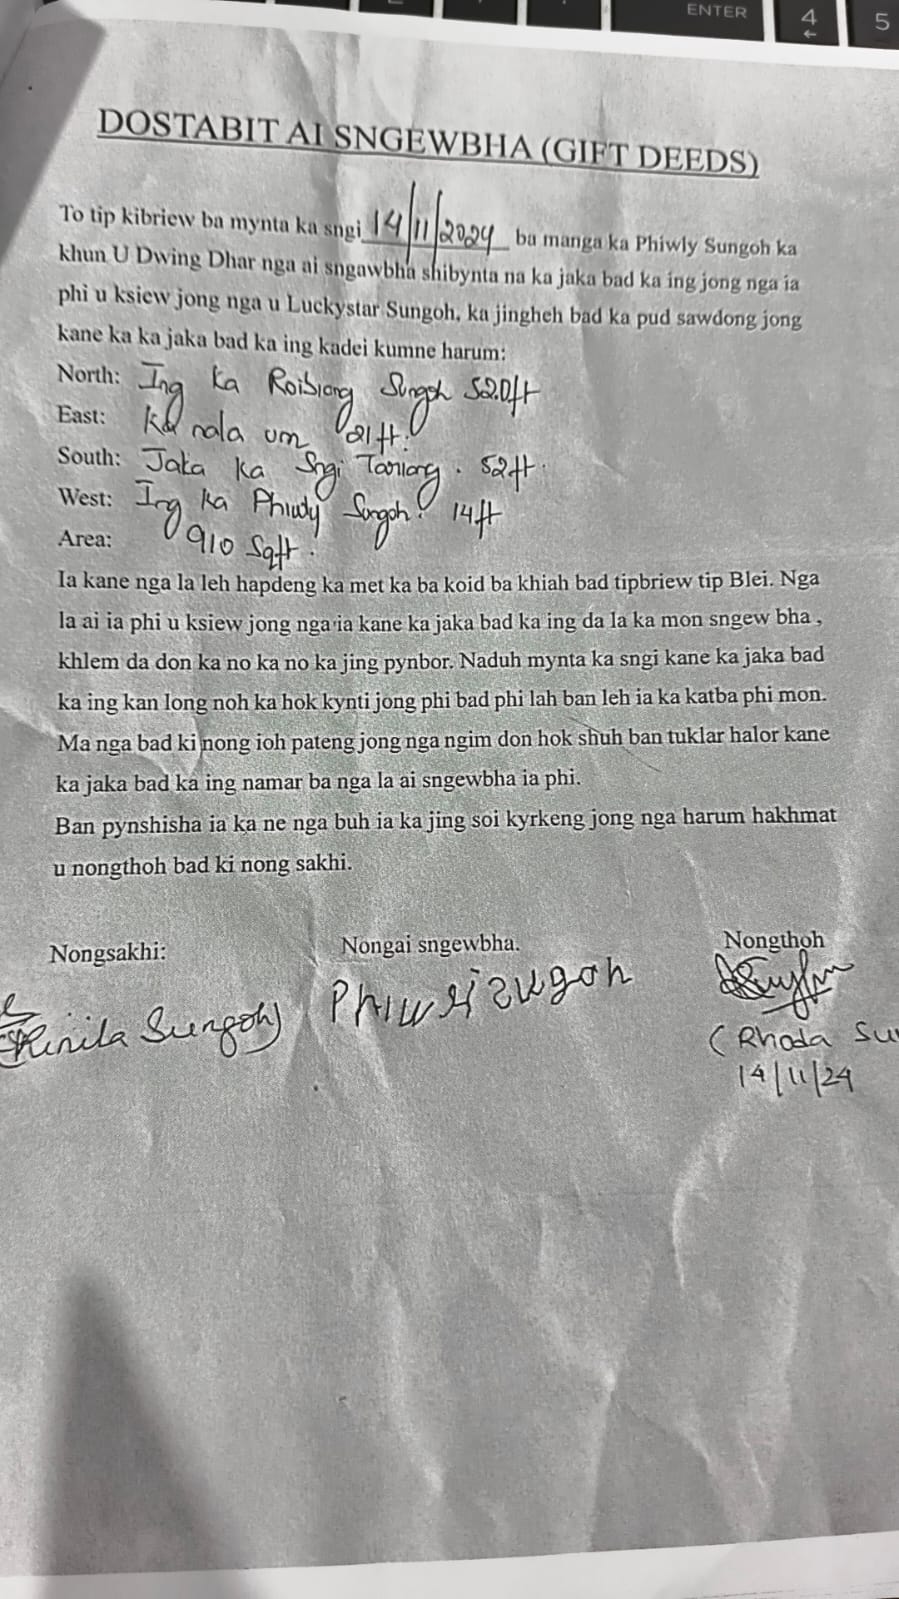 ENTER
4
←
5
DOSTABIT AI SNGEWBHA (GIFT DEEDS)
To tip kibriew ba mynta ka sngi 14/11/2024 ba manga ka Phiwly Sungoh ka
khun U Dwing Dhar nga ai sngawbha shibynta na ka jaka bad ka ing jong nga ia
phi u ksiew jong nga u Luckystar Sungoh, ka jingheh bad ka pud sawdong jong
kane ka ka jaka bad ka ing kadei kumne harum:
North: Ing ka Roibiang Sungoh 52.0ft
East: Ka nala um 21ft.
South: Jaka ka Sngi Tariang. 52ft.
West: Ing ka Phiwly Sungoh. 14ft
Area: 910 Sqft.
Ia kane nga la leh hapdeng ka met ka ba koid ba khiah bad tipbriew tip Blei. Nga
la ai ia phi u ksiew jong nga ia kane ka jaka bad ka ing da la ka mon sngew bha ,
khlem da don ka no ka no ka jing pynbor. Naduh mynta ka sngi kane ka jaka bad
ka ing kan long noh ka hok kynti jong phi bad phi lah ban leh ia ka katba phi mon.
Ma nga bad ki nong ioh pateng jong nga ngim don hok shuh ban tuklar halor kane
ka jaka bad ka ing namar ba nga la ai sngewbha ia phi.
Ban pynshisha ia ka ne nga buh ia ka jing soi kyrkeng jong nga harum hakhmat
u nongthoh bad ki nong sakhi.
Nongsakhi: Nongai sngewbha. Nongthoh
Sungoh
(Rhoda Su
14/11/24